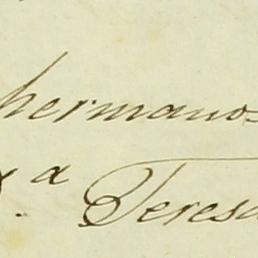 hermano=
a Teresa